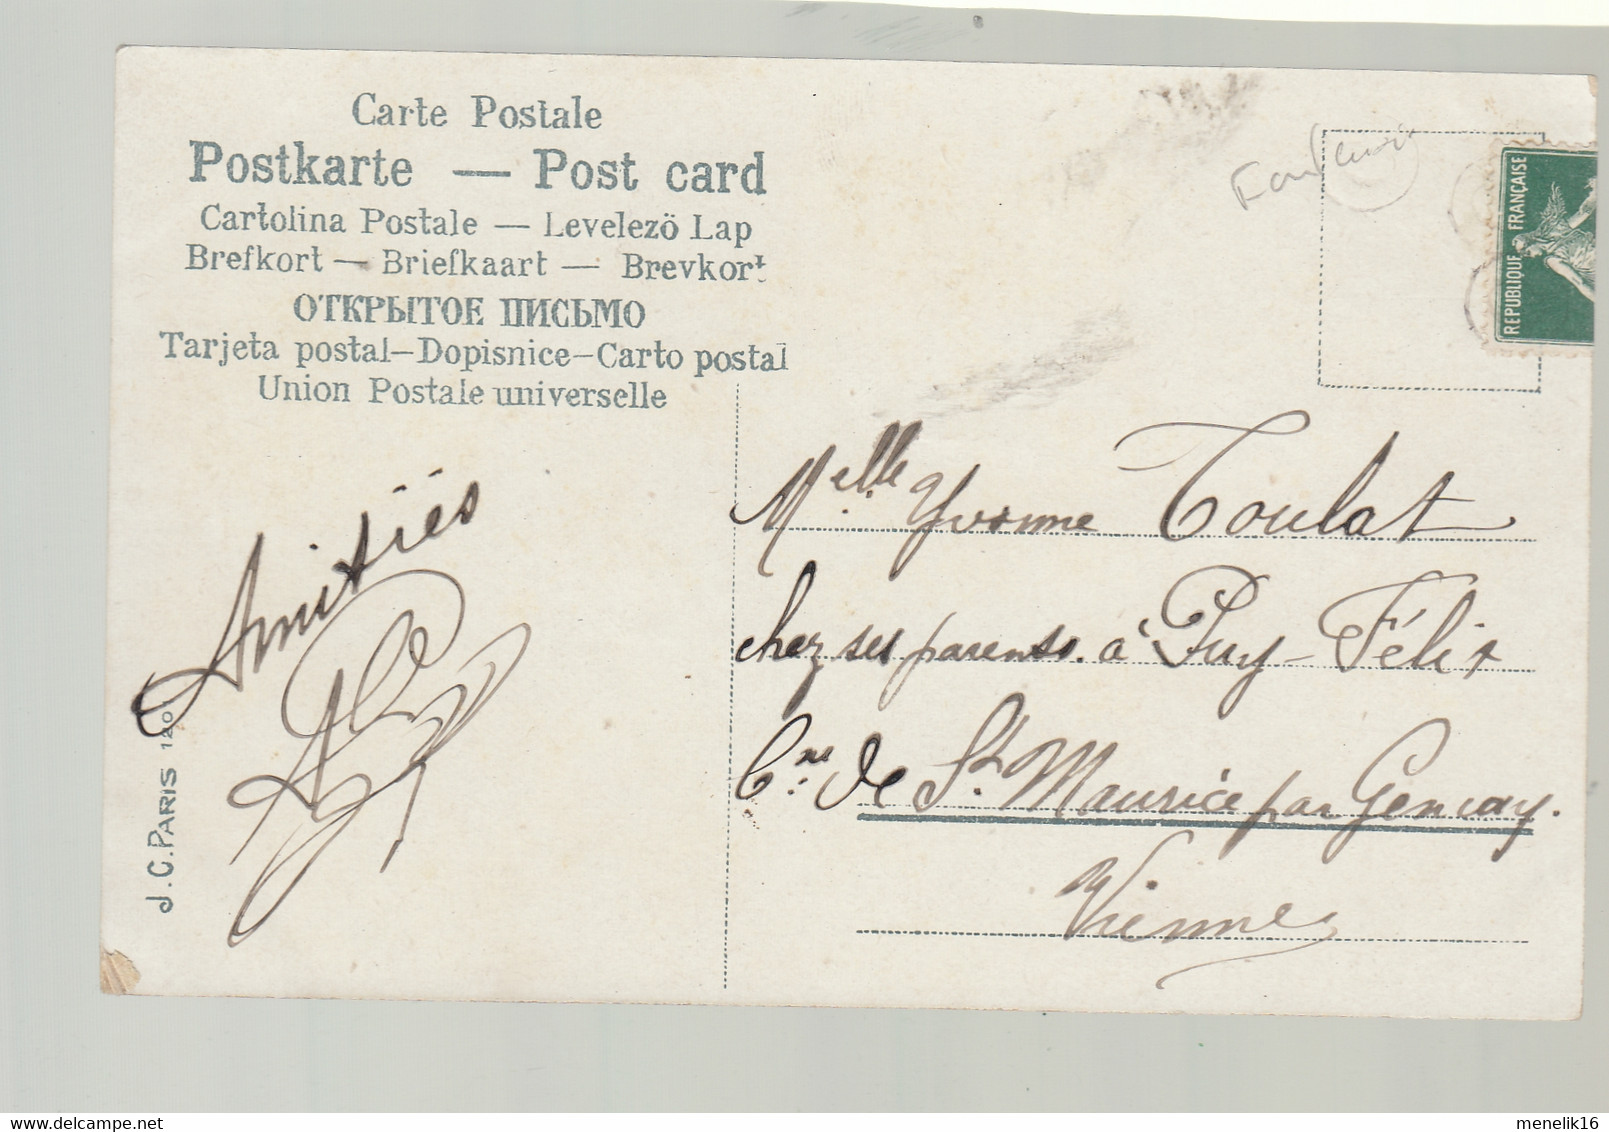 Carte Postale
Postkarte — Post card
Cartolina Postale — Levelezö Lap
Brefkort — Briefkaart — Brevkort
ОТКРЫТОЕ ПИСЬМО
Tarjeta postal–Dopisnice–Carto postal
Union Postale universelle
REPUBLIQUE FRANÇAISE
Amitiés
Melle Yvonne Toulat
chez ses parents à Puy-Félix
Cne de St Maurice par Gençay.
Vienne
J.C. PARIS 120
delcampe.net
menelik16